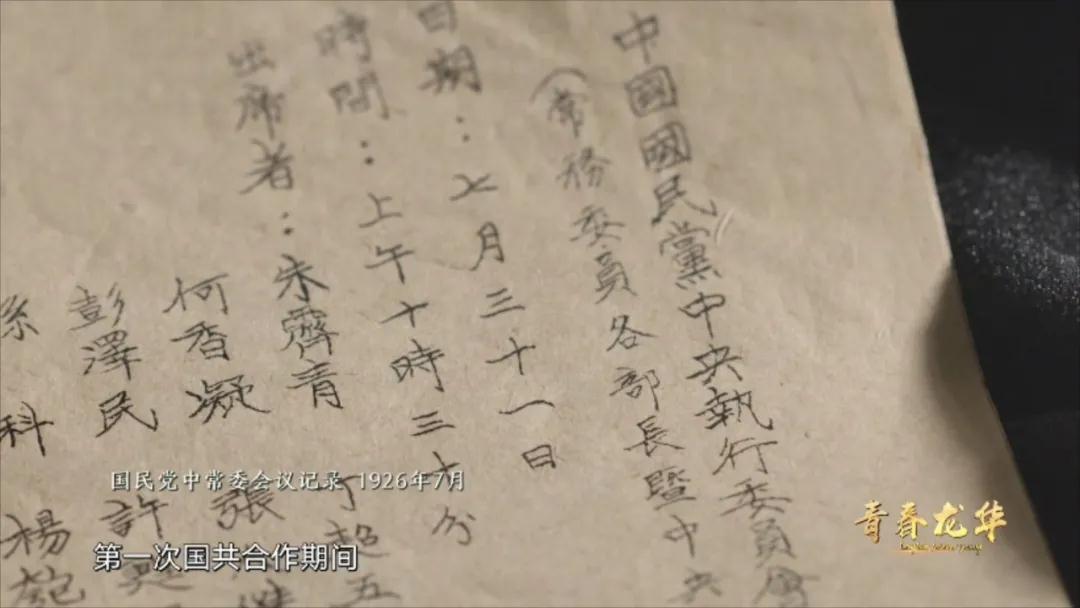 中國國民黨中央執行委員會
（常務委員各部長暨中央
日期：七月三十一日
時間：上午十時三十分
出席者：朱霽青
丁超五
何香凝
張
彭澤民
許
科
楊匏
国民党中常委会议记录 1926年7月
第一次国共合作期间
青春龙华